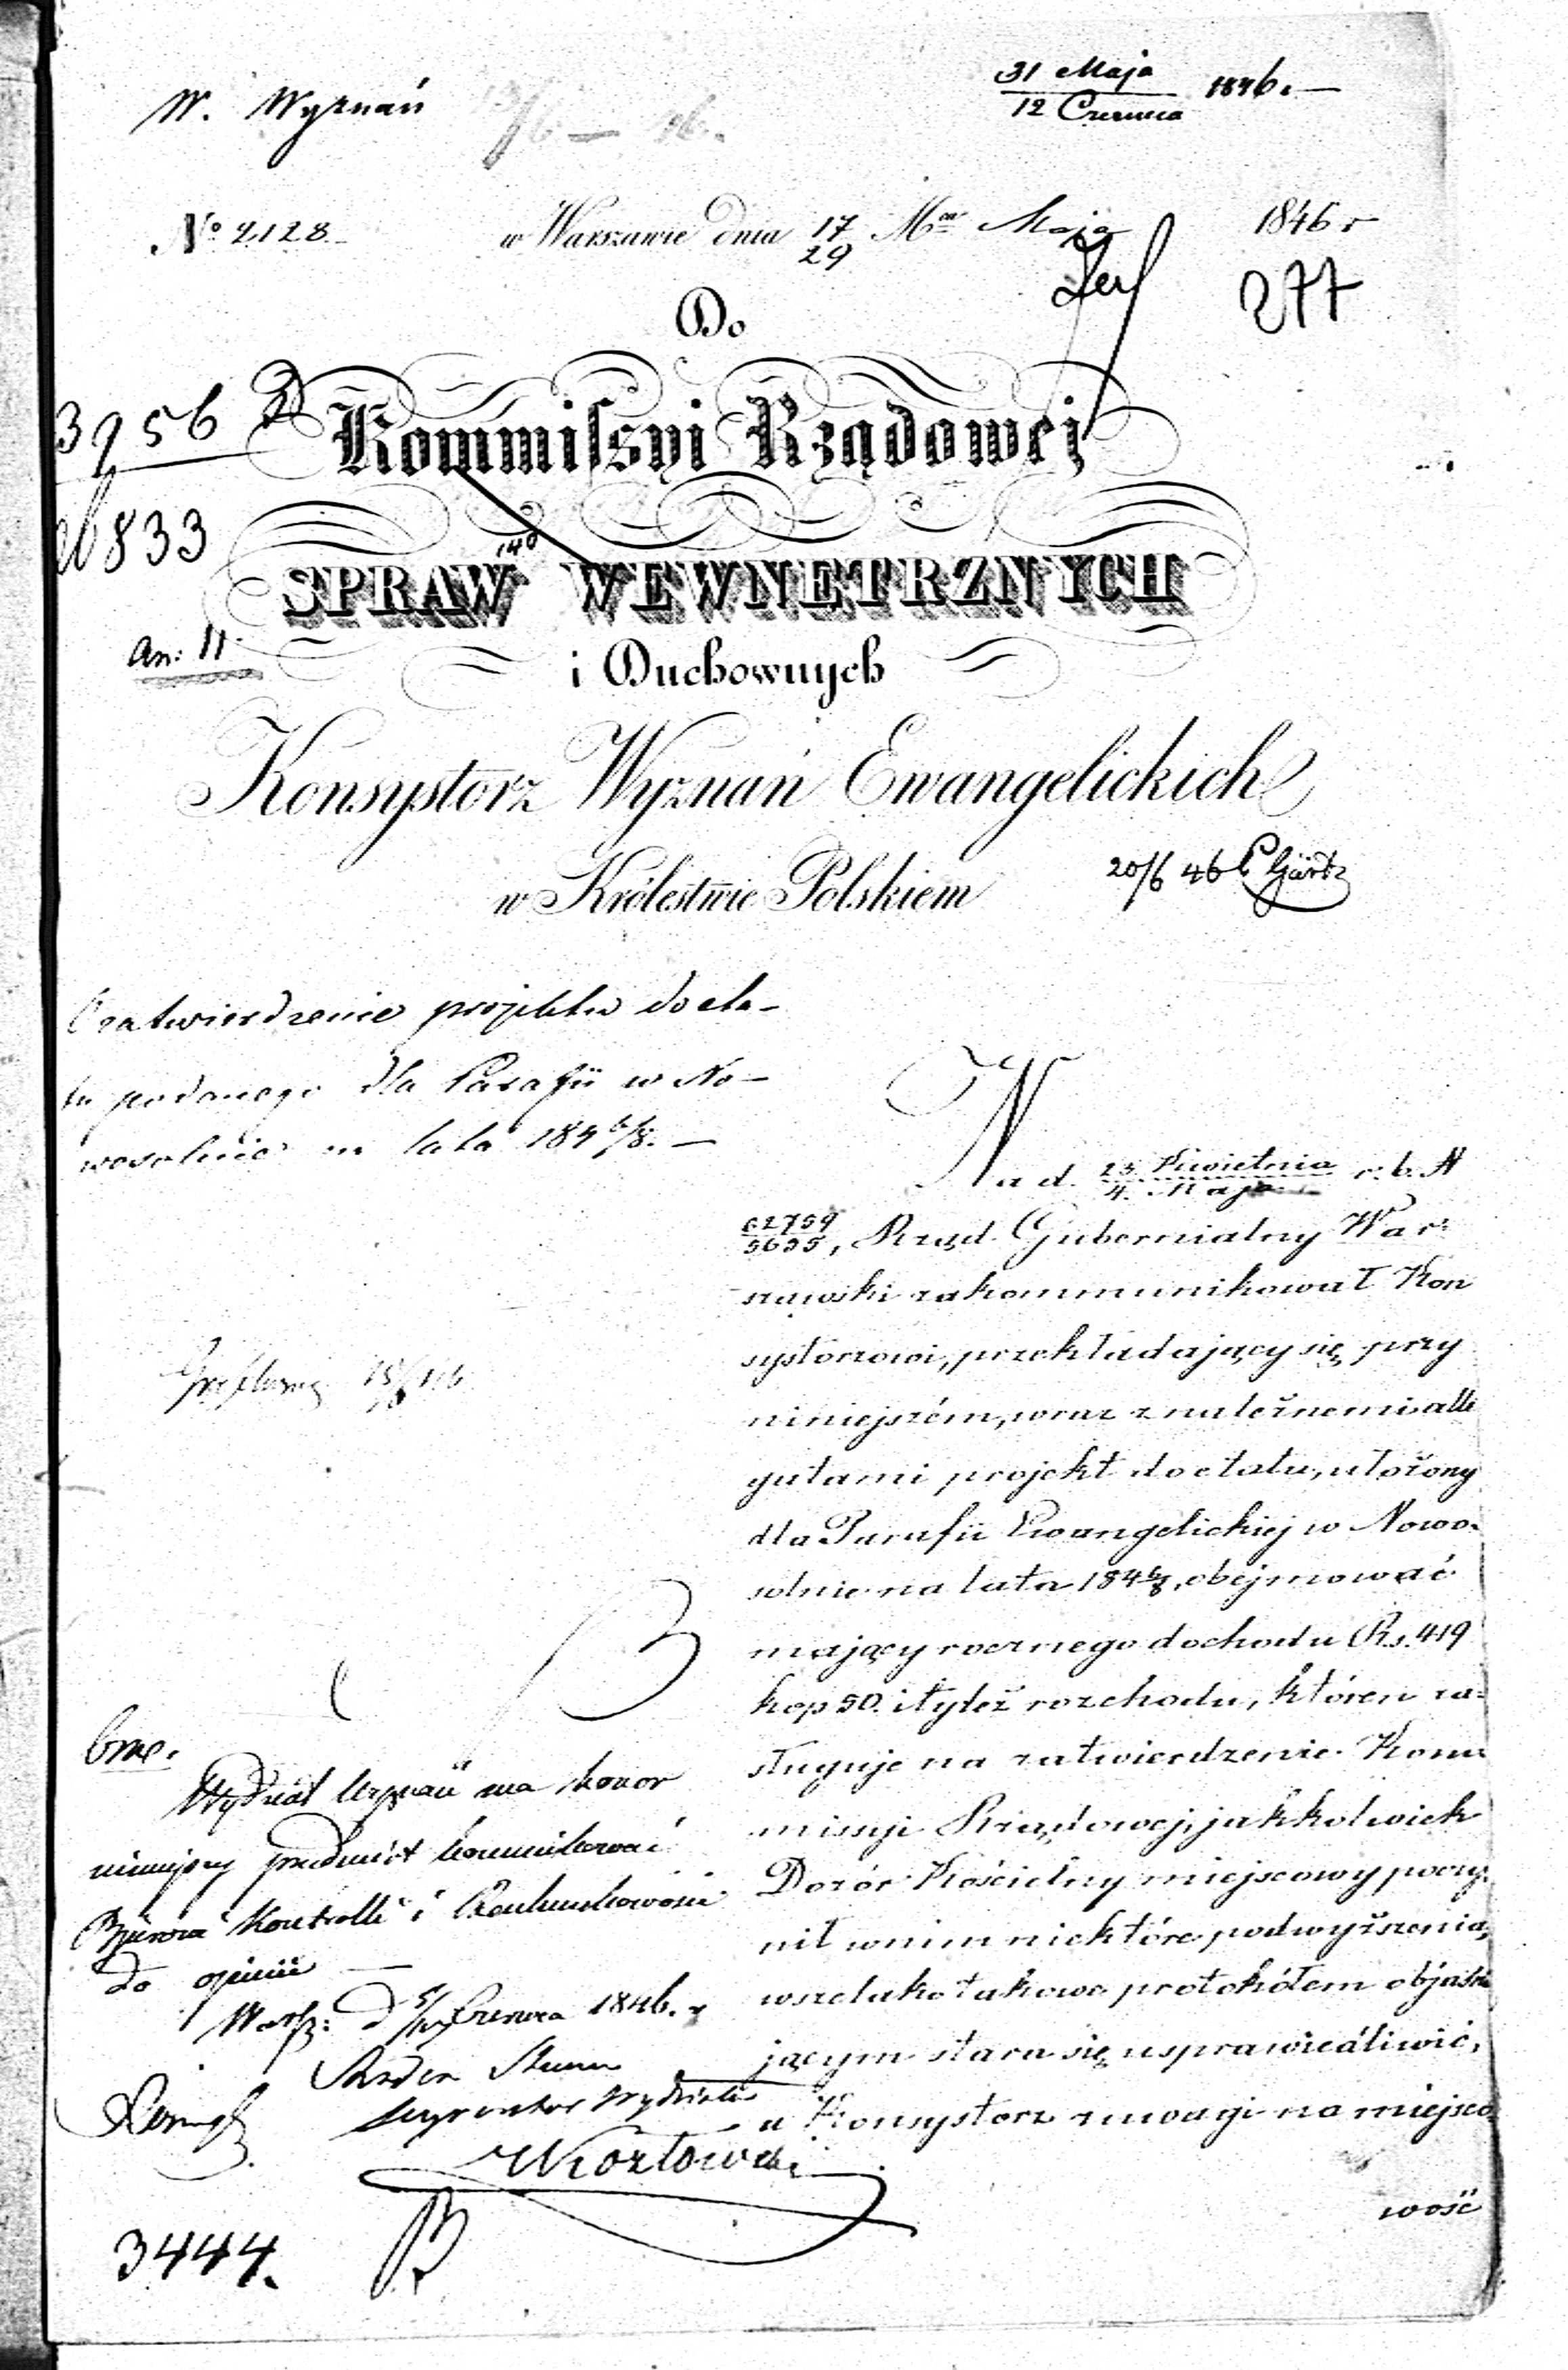 W. Wyznań
31 Maja
12 Czerwca 1846.
No 2128
w Warszawie dnia 17/29 Mca Maja 1846 r
277
Do
3956
Kommissyi Rządowej
833
140
SPRAW WEWNĘTRZNYCH
an: 11.
i Duchownych
Konsystorz Wyznań Ewangelickich
w Królestwie Polskiem
20/6 46
O zatwierdzenie projektu do eta-
tu podanego dla Parafii w No-
wosolnie na lata 1846/8. —
Na d. 23 Kwietnia/4. Maja r. b. N
62759/5635, Rząd Gubernialny War-
szawski zakommunikował Kon
systorzowi, przekładający się przy
niniejszém, wraz z należnemi alle
gatami projekt do etatu, ułożony
dla Parafii Ewangelickiej w Nowo-
solnie na lata 1846/8, obejmować
mający rocznego dochodu Rs. 419
kop 50. i tyleż rozchodu, któren za-
sługuje na zatwierdzenie Kom
missyi Rządowej, jakkolwiek
Dozór Kościelny miejscowy poczy-
nił w nim niektóre podwyższenia,
wszelako takowe protokółem objaśnia
jącym stara się usprawiedliwić,
a Konsystorz z uwagi na miejsco
wość
Wydział Wyznań ma honor
niniejszy przedmiot kommunikować
Biurowi Kontrolli i Rachunkowości
do opinii —
Warsz: d Czerwca 1846. r
Radca Stanu
Dyrektor Wydziału
Kozłowski
3444.